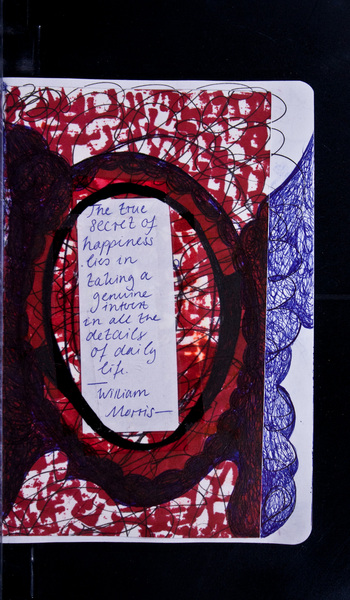 The true
secret of
happiness
lies in
taking a
genuine
interst
in all the
details
of daily
life.
— William
Morris —